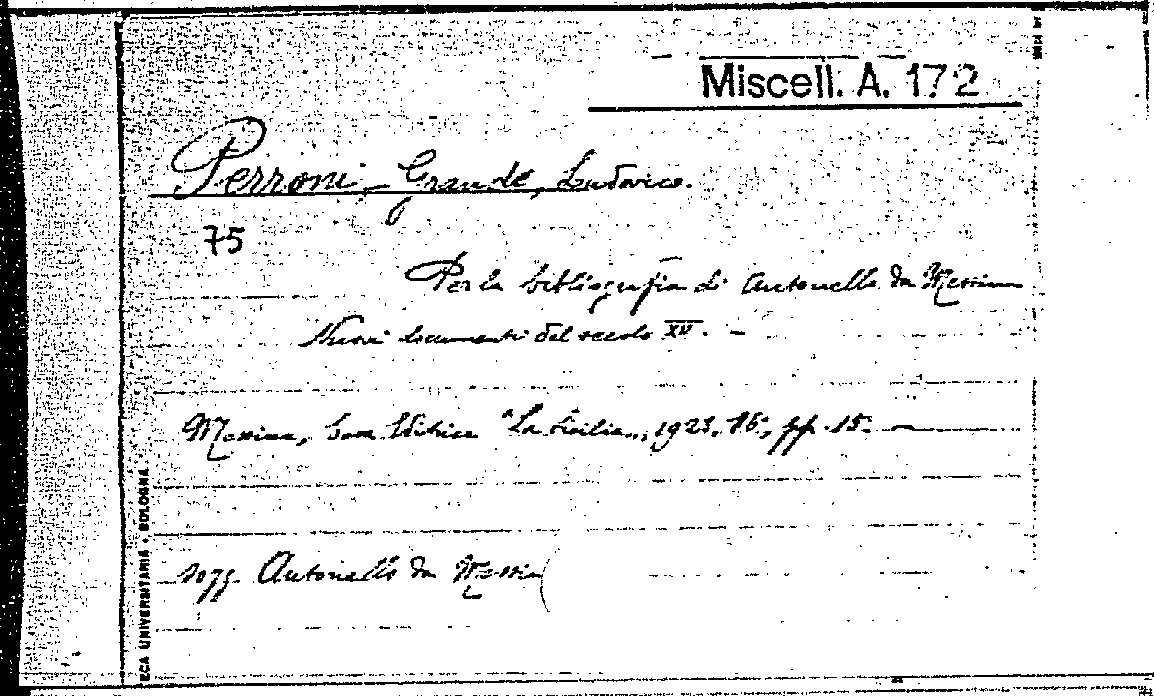 Miscell. A. 172
Perroni-Grande, Ludovico.
75
Per la bibliografia di Antonello da Messina
Nuovi documenti del secolo XV. -
Messina, Casa Editrice "La Sicilia", 1923, 16°, pp. 15. -
sogg. Antonello da Messina
ECA UNIVERSITARIA - BOLOGNA